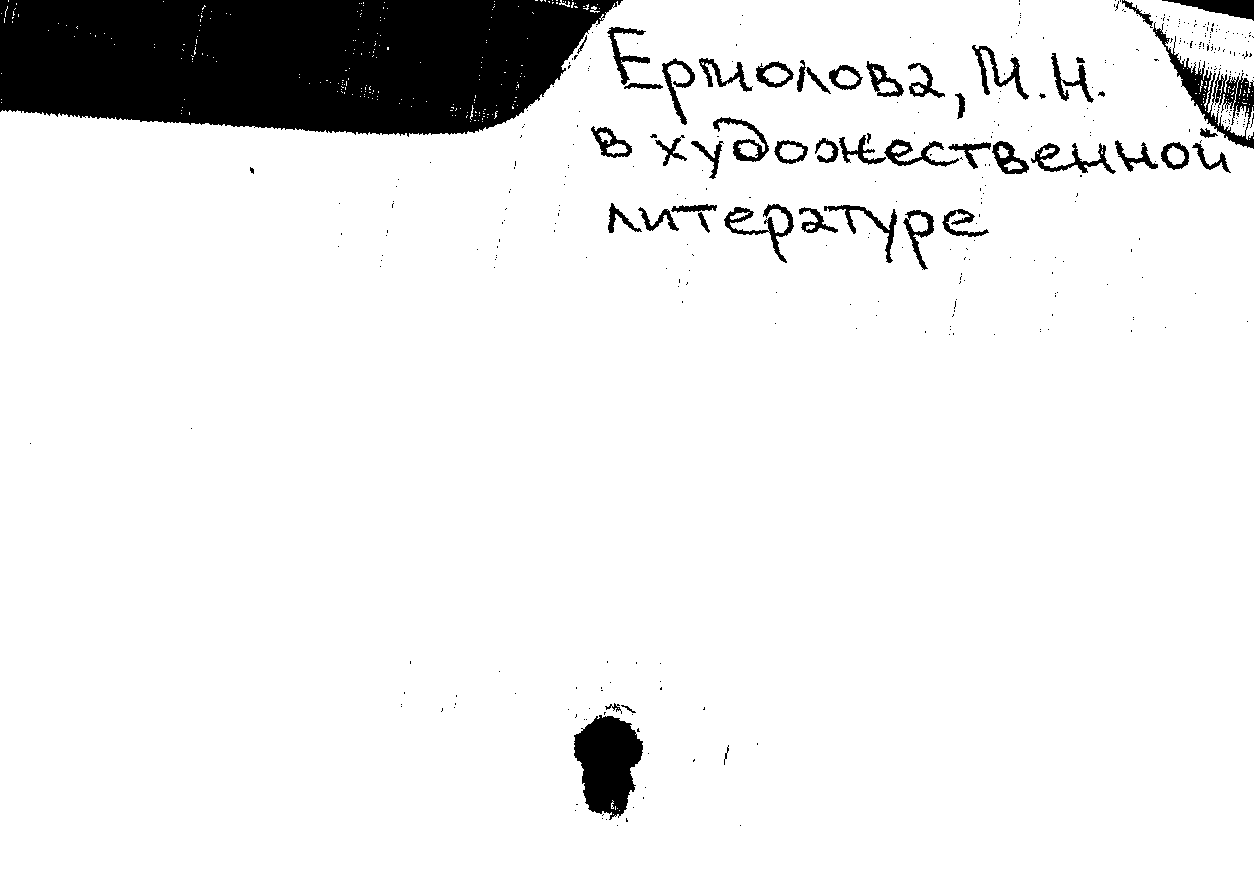 Ермолова, М.Н.
в художественной
литературе